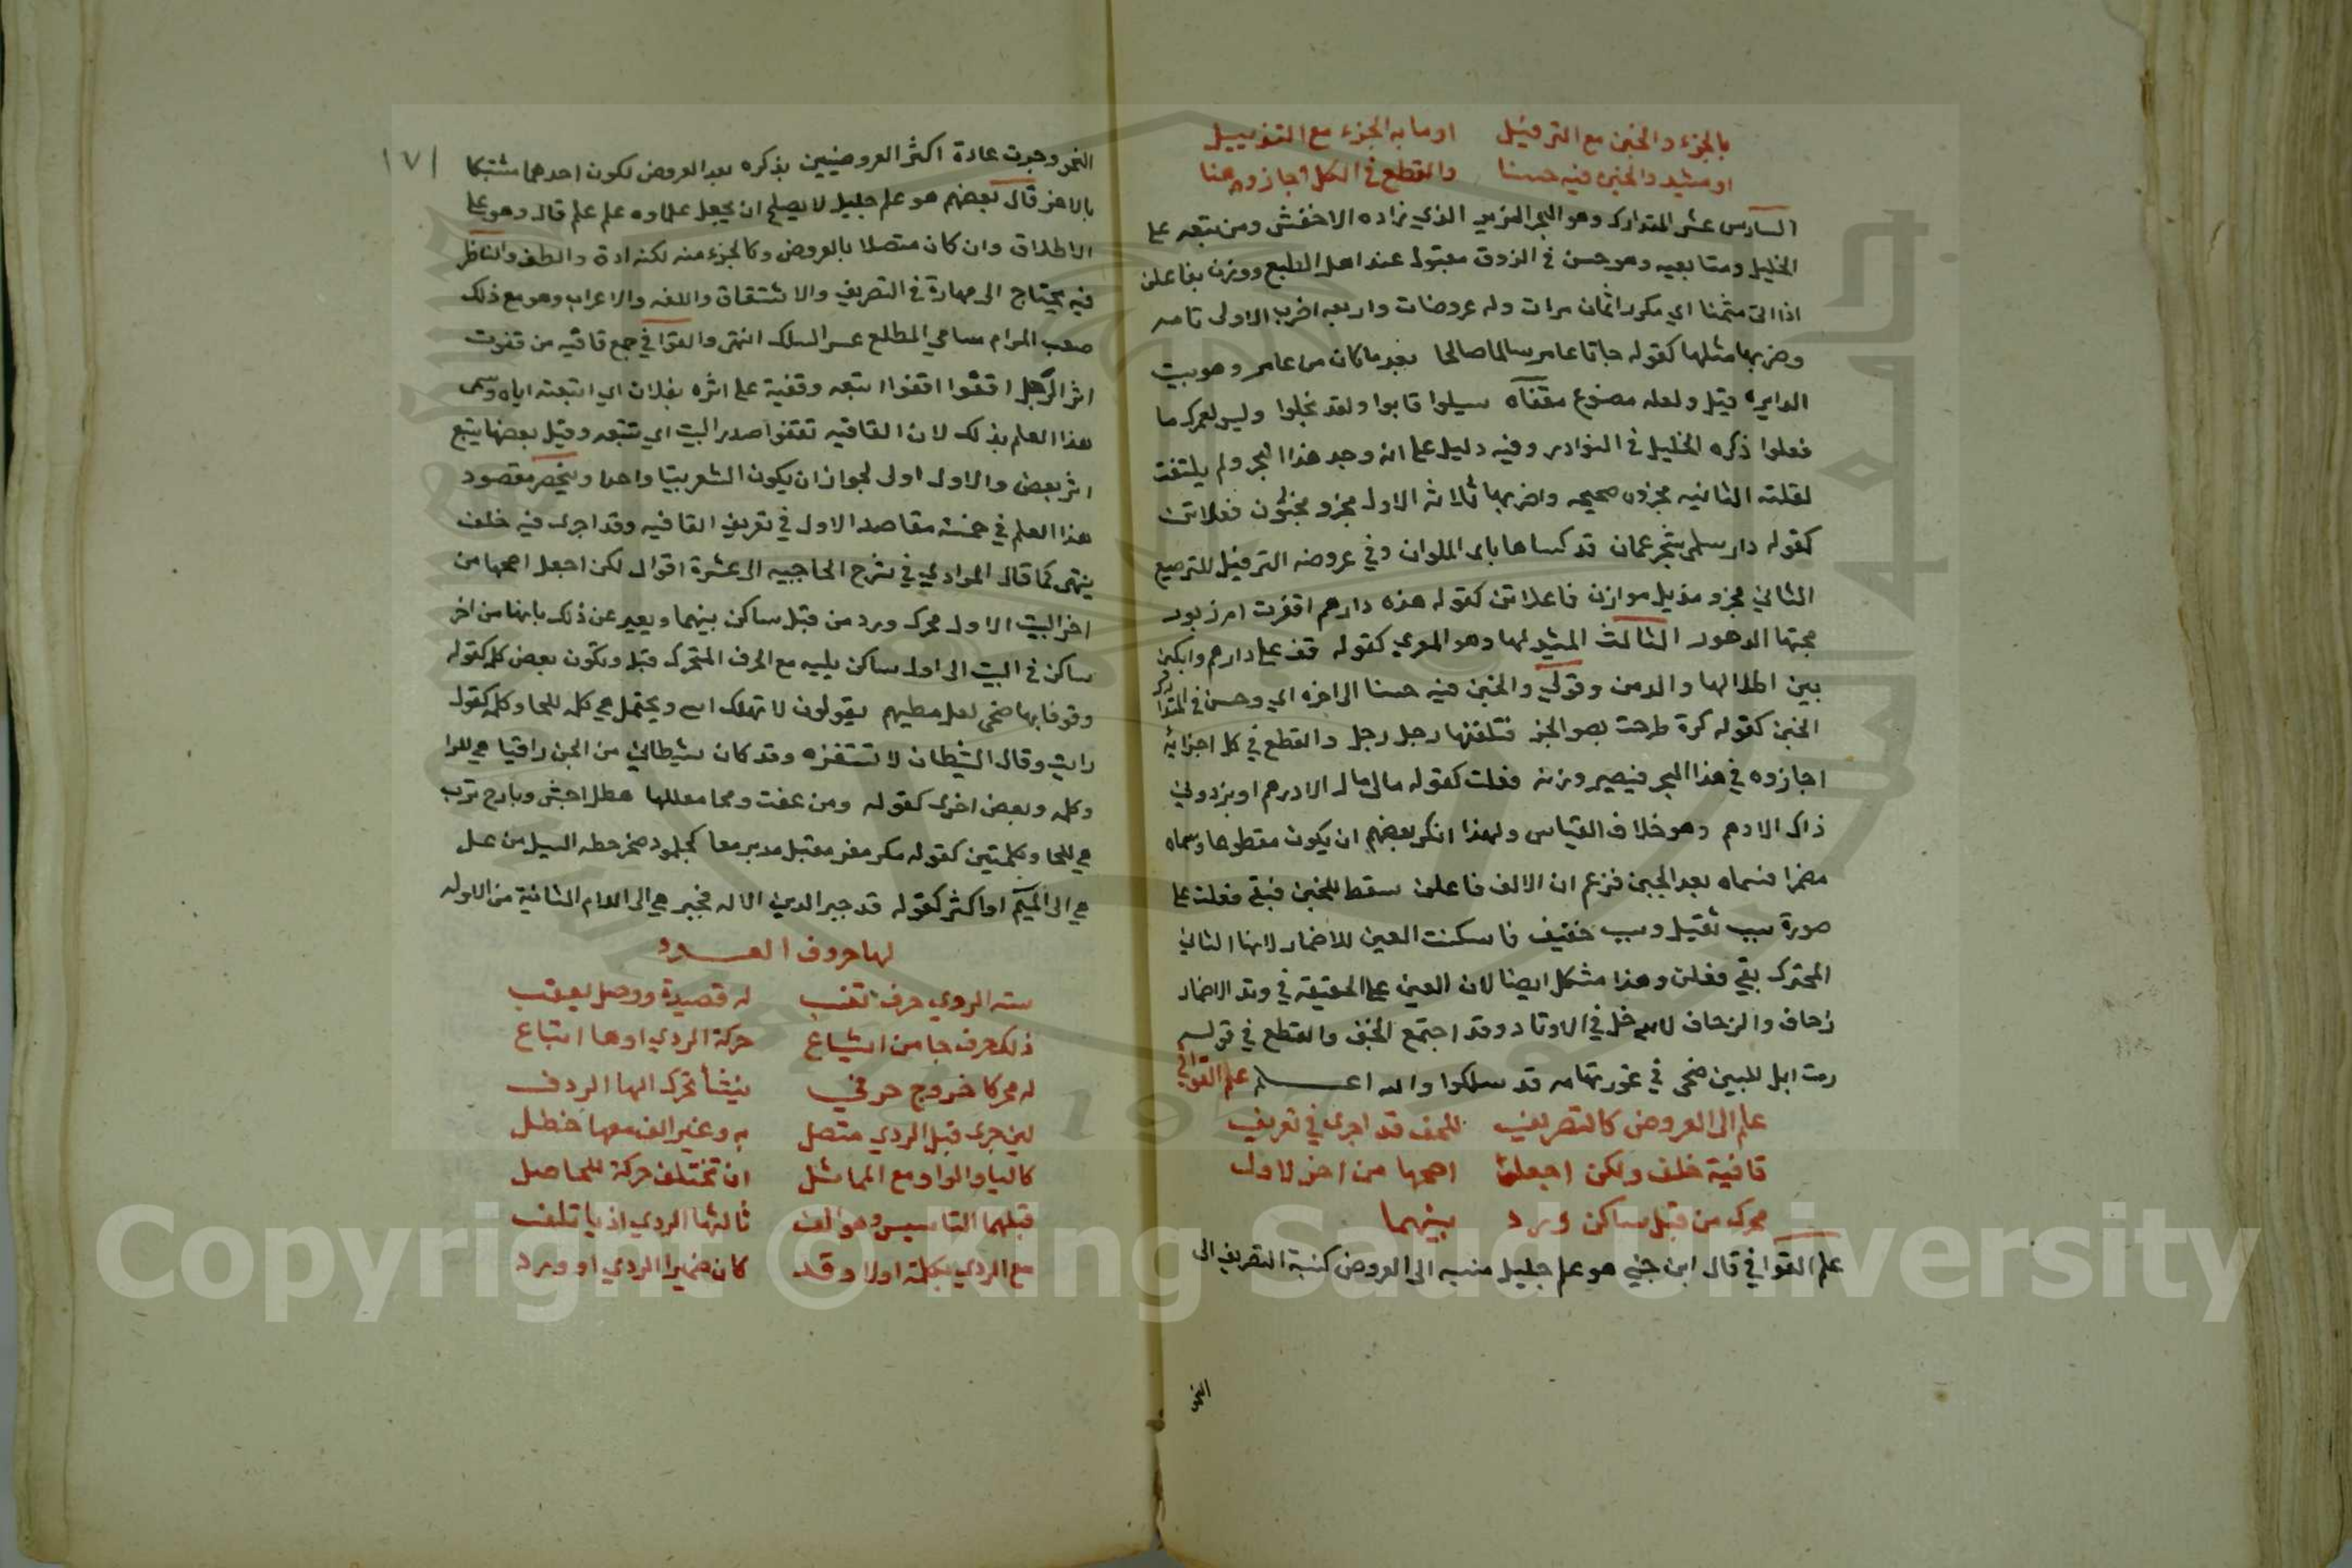 بالجزء والخبن مع الترفيل او ما به الجزء مع التذييل
او مثيد والخبن فيه حسنا والقطع في الكل اجازو هنا
السادس عشر المتدارك وهو البحر المزيد الذي زاده الاخفش ومن تبعه على
الخليل ومتابعيه وهو حسن في الذوق مقبول عند اهل الطبع ووزن بفاعلن
اذا اتى مثمنا اي مكررا ثمان مرات وله عروضات واربعه اضرب الاولى تامه
وضربها مثلها كقوله جاءنا عامر سالما صالحا بعد ما كان من عامر وهو بيت
الدايره قيل ولعله مصنوع مقفاه سيلوا قابوا ولقد بخلوا وليس لعمرك ما
فعلوا ذكره الخليل في النوادر وفيه دليل على انه وجد هذا البحر ولم يلتفت
لقلته الثانيه مجزوه صحيحه واضربها ثلاثه الاول مجزو مخبون فعلاتن
كقوله دار سلمى بشحر عمان قد كساها بلى الملوان وفي عروضه الترفيل للترصيع
الثاني مجزو مذيل موازن فاعلاتن كقوله هذه دارهم اقفرت ام زبور
محتها الدهور الثالث لها وهو المعري كقوله قف على دارهم وابكين
بين اطلالها والدمن وقولي والخبن فيه حسنا الى اخره اي وحسن في المتدارك
الخبن كقوله كرة طرحت بصوالجة فتلقفها رجل رجل والقطع في كل اجزائه
اجازوه في هذا البحر فيصير وزنه فعلن كقوله مالي مال الا درهم او برذوني
ذاك الادهم وهو خلاف القياس ولهذا انكر بعضهم ان يكون مقطوعا وسماه
مضمرا بعد الخبن فزعم ان الالف فاعلن سقط للخبن فبقي فعلن على
صورة سبب ثقيل وسبب خفيف فاسكنت العين للاضمار لانها الثاني
المحترك بقي فعلن وهذا مشكل ايضا لان العين على الحقيقه في وتد الاضمار
زحاف والزحاف لا يدخل في الاوتاد وقد اجتمع الخبن والقطع في قوله
زمت ابل للبين ضحى في غور تهامه قد سلكوا والله اعلم علم القوافي
علم الى العروض كالتصريف للنحو قد اجري في تعريف
قافية خلف ولكن اجعلن اصحها من اخر لاول
محرك من قبل ساكن ورد بينهما
علم القوافي قال ابن جني هو علم جليل الى العروض كنسبة التصريف الى
النحو
١٧١
النحو وجرت عادة اكثر العروضيين بذكره بعد العروض لكون احدهما مشتبكا
بالاخر قال بعضهم هو علم جليل لا يصلح ان يجعل علاوه علم على علم قال وهو على
الاطلاق وان كان متصلا بالعروض وكالجزء منه لكنه ادق والطف والناظر
فيه يحتاج الى مهارة في التصريف والاشتقاق واللغه والاعراب وهو مع ذلك
صعب المرام سامي المطلع عسر السلك انتهى والقوافي جمع قافيه من قفوت
اثر الرجل اقفوا اقفوا اتبعه وقفية على اثره بفلان اي اتبعته اياه وسمي
هذا العلم بذلك لان القافيه تقفوا صدر البيت اي تتبعه وقيل بعضها يتبع
اثر بعض والاول اولى لجواز ان يكون الشعر بيتا واحدا وينحصر مقصود
هذا العلم في خمسة مقاصد الاول في تعريف القافيه وقد اجرى فيه خلف
ينتهى كما قال المرادي في شرح الحاجبيه الى عشرة اقوال لكن اجعل اصحها من
اخر البيت الاول محرك ورد من قبل ساكن بينهما ويعبر عن ذلك بانها من اخر
ساكن في البيت الى اول ساكن يليه مع الحرف المتحرك قبله وتكون بعض كلمه كقوله
وقوفا بها صحبى لعل مطيهم يقولون لا تهلك اسى ويحتمل هي كله للحا وكلمه كقوله
رايت وقال الشيطان لا تستفزه وقد كان شيطاني من الجن راقيا هي للرا
وكلمه وبعض اخرى كقوله ومن عفت ومحا معالمها هطل اجش وبارح ترب
هي للحا وكلمتين كقوله مكر مفر مقبل مدبر معا كجلمود صخر حطه السيل من عل
هي الى الميم او اكثر كقوله قد جبر الدين الاله فجبر هي الى اللام الثانية من الاوله
لها حروف العدد
سته الروي حرف تنسب له قصيدة ووصل يعقب
ذلك حرف جا من اشباع حركة الروي او ها اتباع
له محركا خروج حرفي ينشأ تحرك الها الردف
لين جرى قبل الروي متصل به وغير الف معها خطل
كاليا والواو مع المماثل ان تختلف حركة للحاصل
قبلهما التاسيس وهو الف ثالثها الروي اذ ياتلف
مع الروي بكلمة اولا وقد كان ضميرا الروي او ورد
Copyright © King Saud University
1957